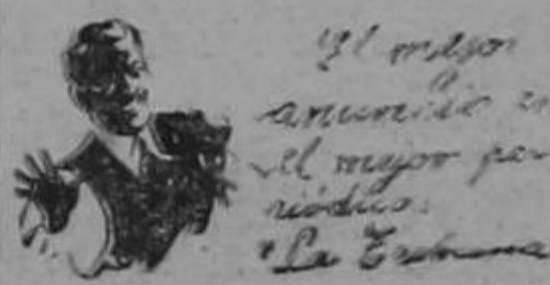 El mejor
anuncio en
el mejor pe-
riódico:
"La Tribuna